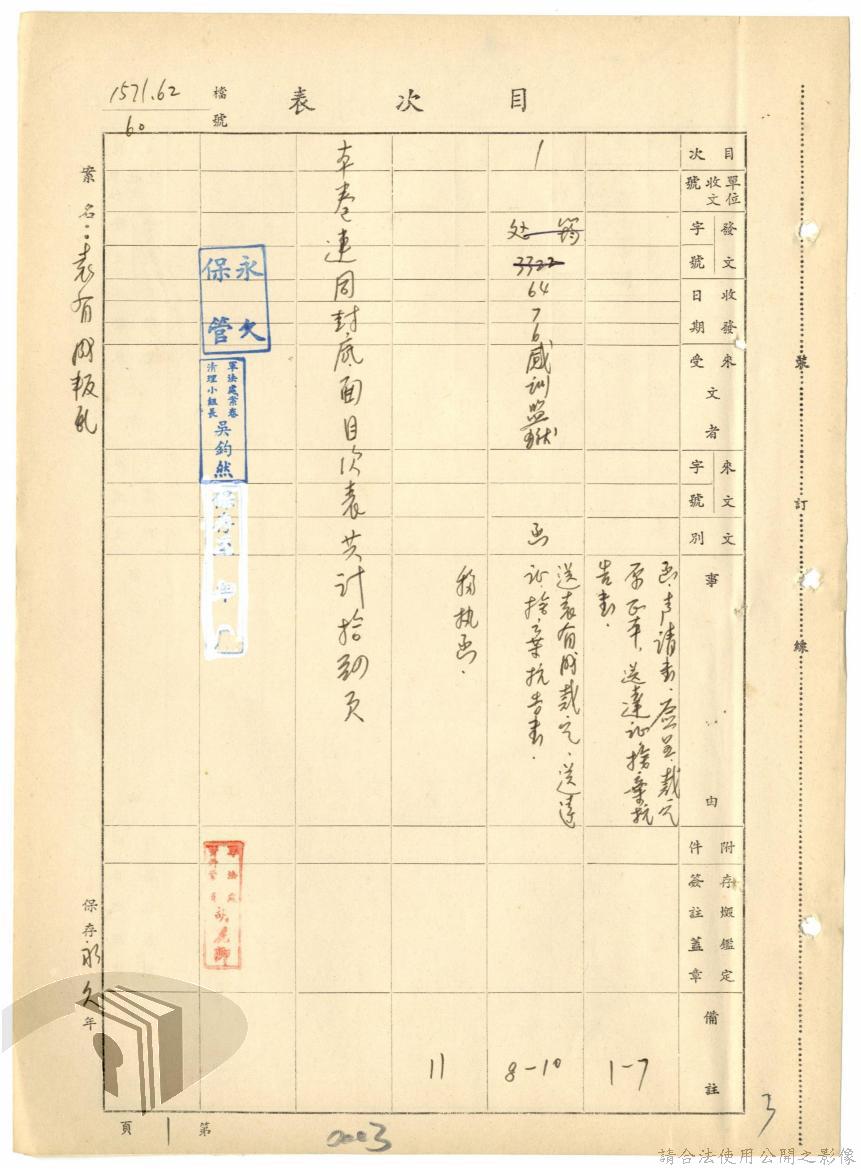 目次表
檔號
1571.62
60
目次
單位收文號
發文字號
收發日期
來受文者
來文字號
文別
事由
附件
存燬鑑定簽註蓋章
備註
函.声請書.
原正本.送達証捨棄抗
告書.
1-7
1
處
3322
64
7
6
感訓監獄
函
送袁有成裁定、送達
証、捨棄抗告書.
8-10
移执函.
11
本卷連同封底面目次表共計拾
頁
永久保管
軍法處案卷
清理小組長
吳鈞然
案名:袁有成叛亂
保存永久年
第1頁
0003
3
裝訂線
請合法使用公開之影像